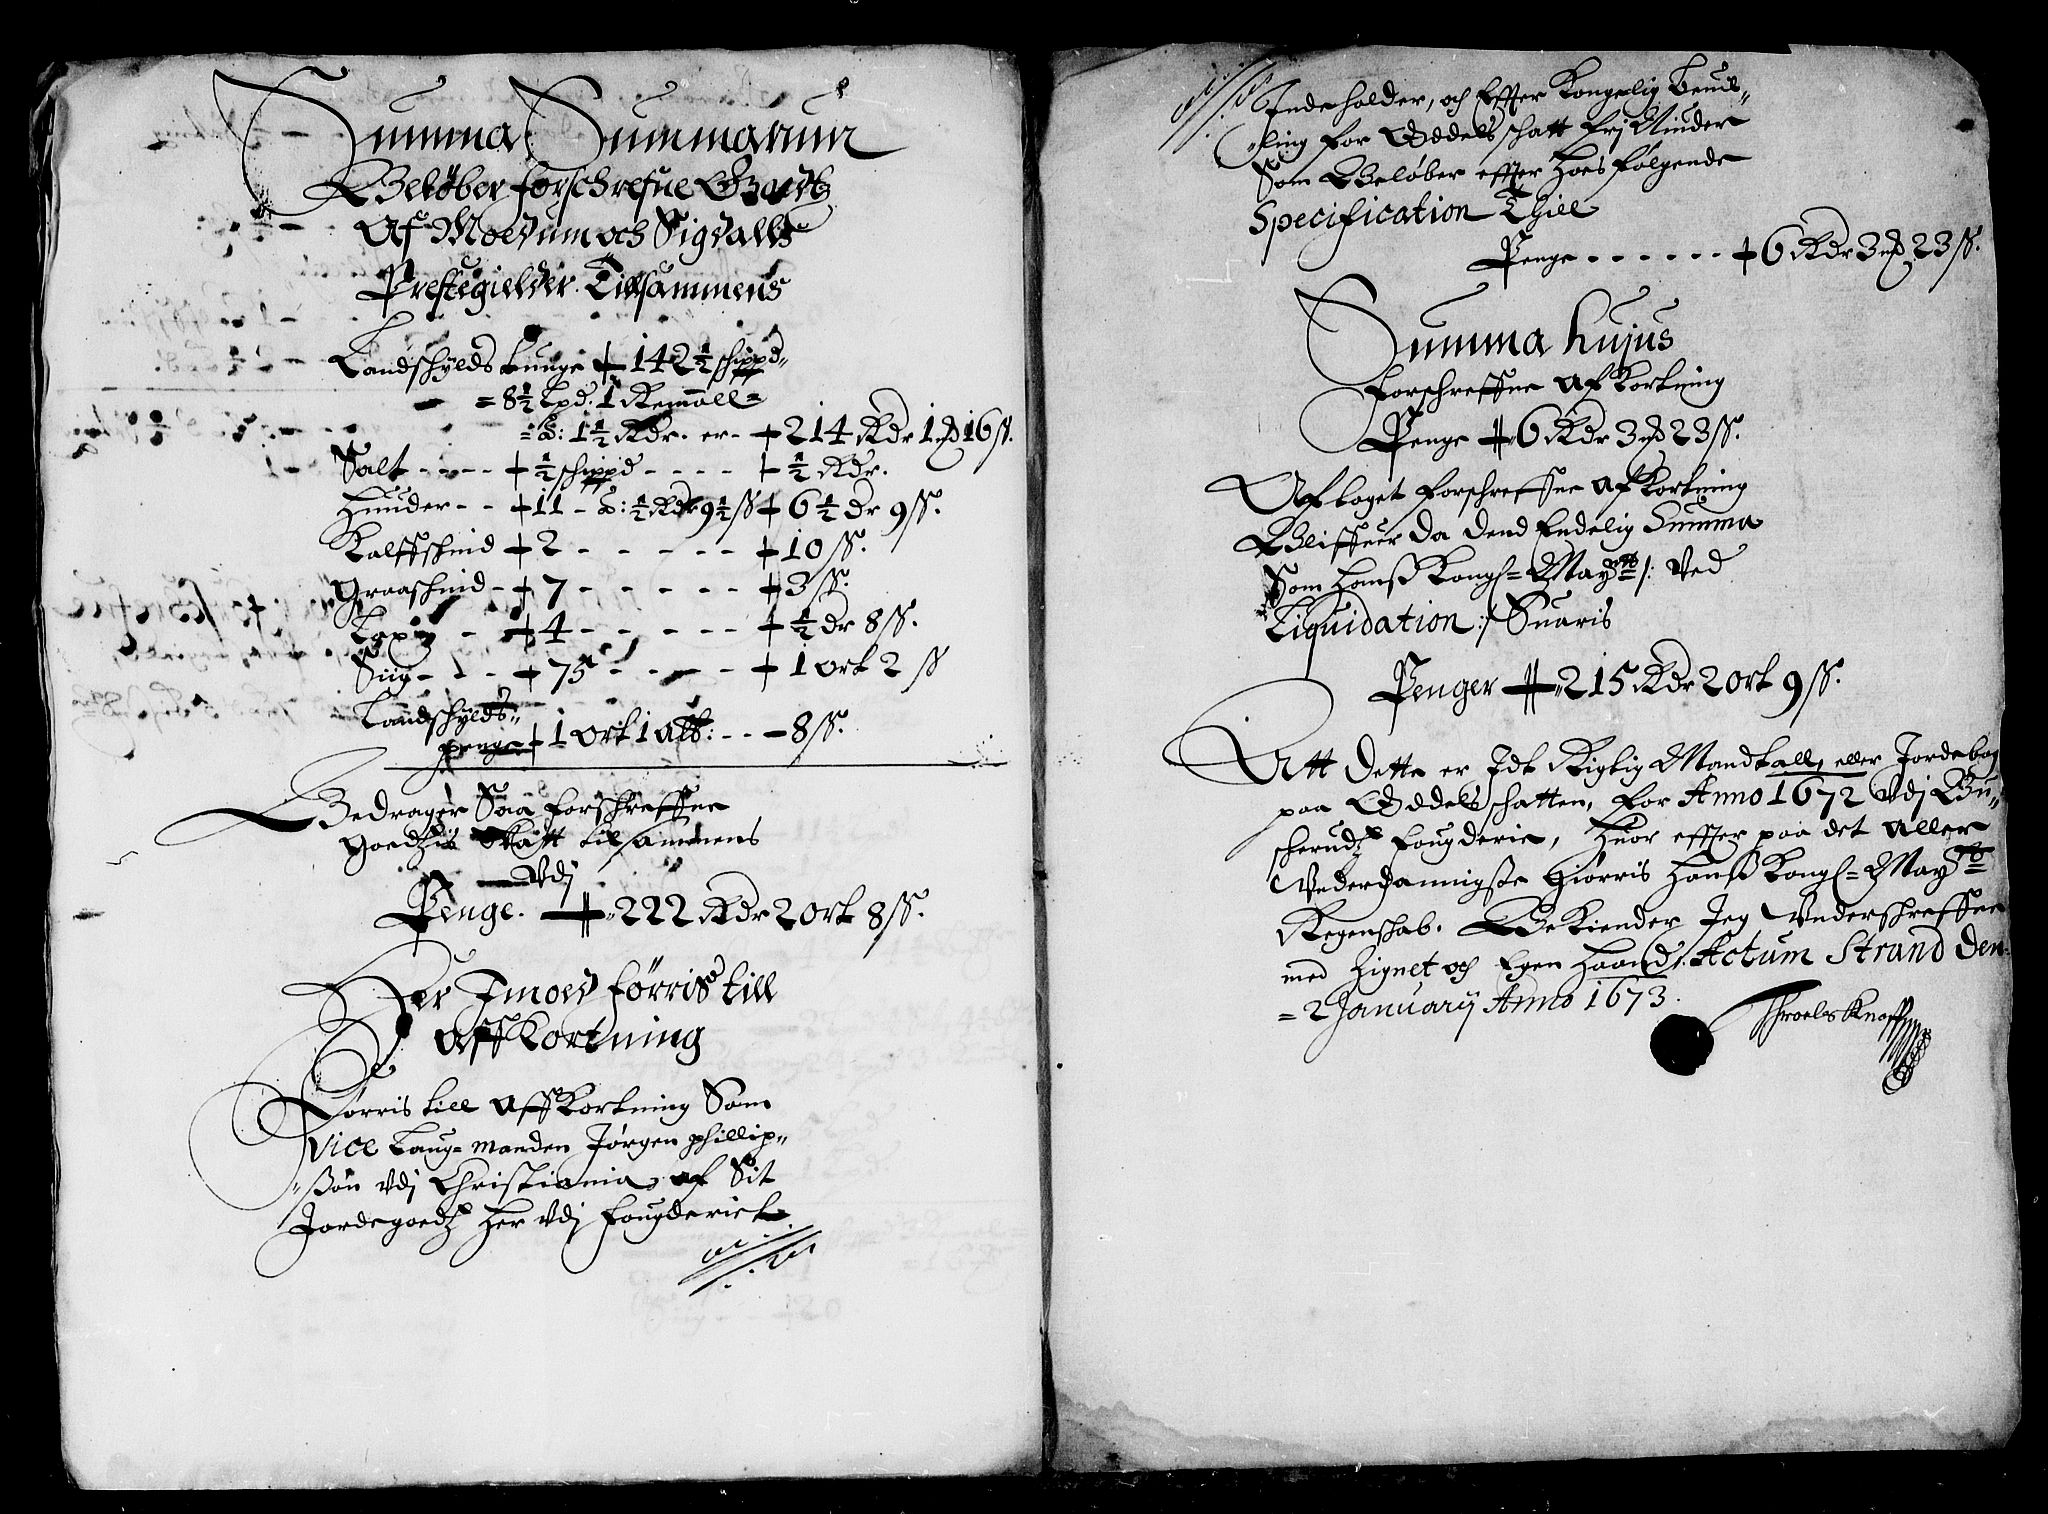 Summa Summarum
Beløber forschrefne Goedtz
Af Modum och Sigdalls
Prestegielder Tillsammens
Landschylds tunge 142½ schippd
= 8½ Lpd. 1 Remoll =
= à: 1½ Rdr. er - 214 Rdr 1 ort 16 ß.
Salt - - - - ½ schippd - - - - ½ Rdr.
Huuder - - 11 - à: ½ Rdr 9½ ß 6½ dr 9 ß.
Kalffschind 2 - - - - - - 10 ß.
Graaschind - 7 - - - - - - 3 ß.
Lax - - 4 - - - - - - ½ dr 8 ß.
Siig - - - 75 - - - - - 1 ort 2 ß
Landschylds-
penge 1 ort 1 alb: - - - 8 ß.
Bedrager Saa forschreffne
Goedtzis Skatt tilsammens
Vdj
Penge. 222 Rdr 2 ort 8 ß.
Her Imod førris till
Affkortning
Førris till Affkortning Som
Vice Laug=manden Jørgen Phillip-
"ßøn vdj Christiania, af Sit
Jordegoedtz Her vdj fougderiet
Indeholder, och Effter Kongelig beuils-
"ling for Oddels schatt frj Niuder
Som Beløber effter hoes følgende
Specification Thill
Penge - - - - - - 6 Rdr 3 ort 23 ß.
Summa hujus
forschreffne Afkortning
Penge 6 Rdr 3 ort 23 ß.
Aftaget forschreffne Afkortning
Bliffuer da dend Endelig Summa
Som Hanß Kongl= Mayts /: ved
Liquidation :/ Suaris
Penger 215 Rdr 2 ort 9 ß.
Att dette er Idt Rigtig Mandtall, eller Jordebog
paa Oddels schatten, for Anno 1672 vdj Bu-
scheruds fougderie, Huor effter paa det Aller
Vnderdannigste Giørris Hanß Kongl= Mayts
Regenschab. Bekiender Jeg Vnderschreffne
med Zignet och Egen Haand. Actum Strand Den
= 2 Januarij Anno 1673.
Throels Knoff